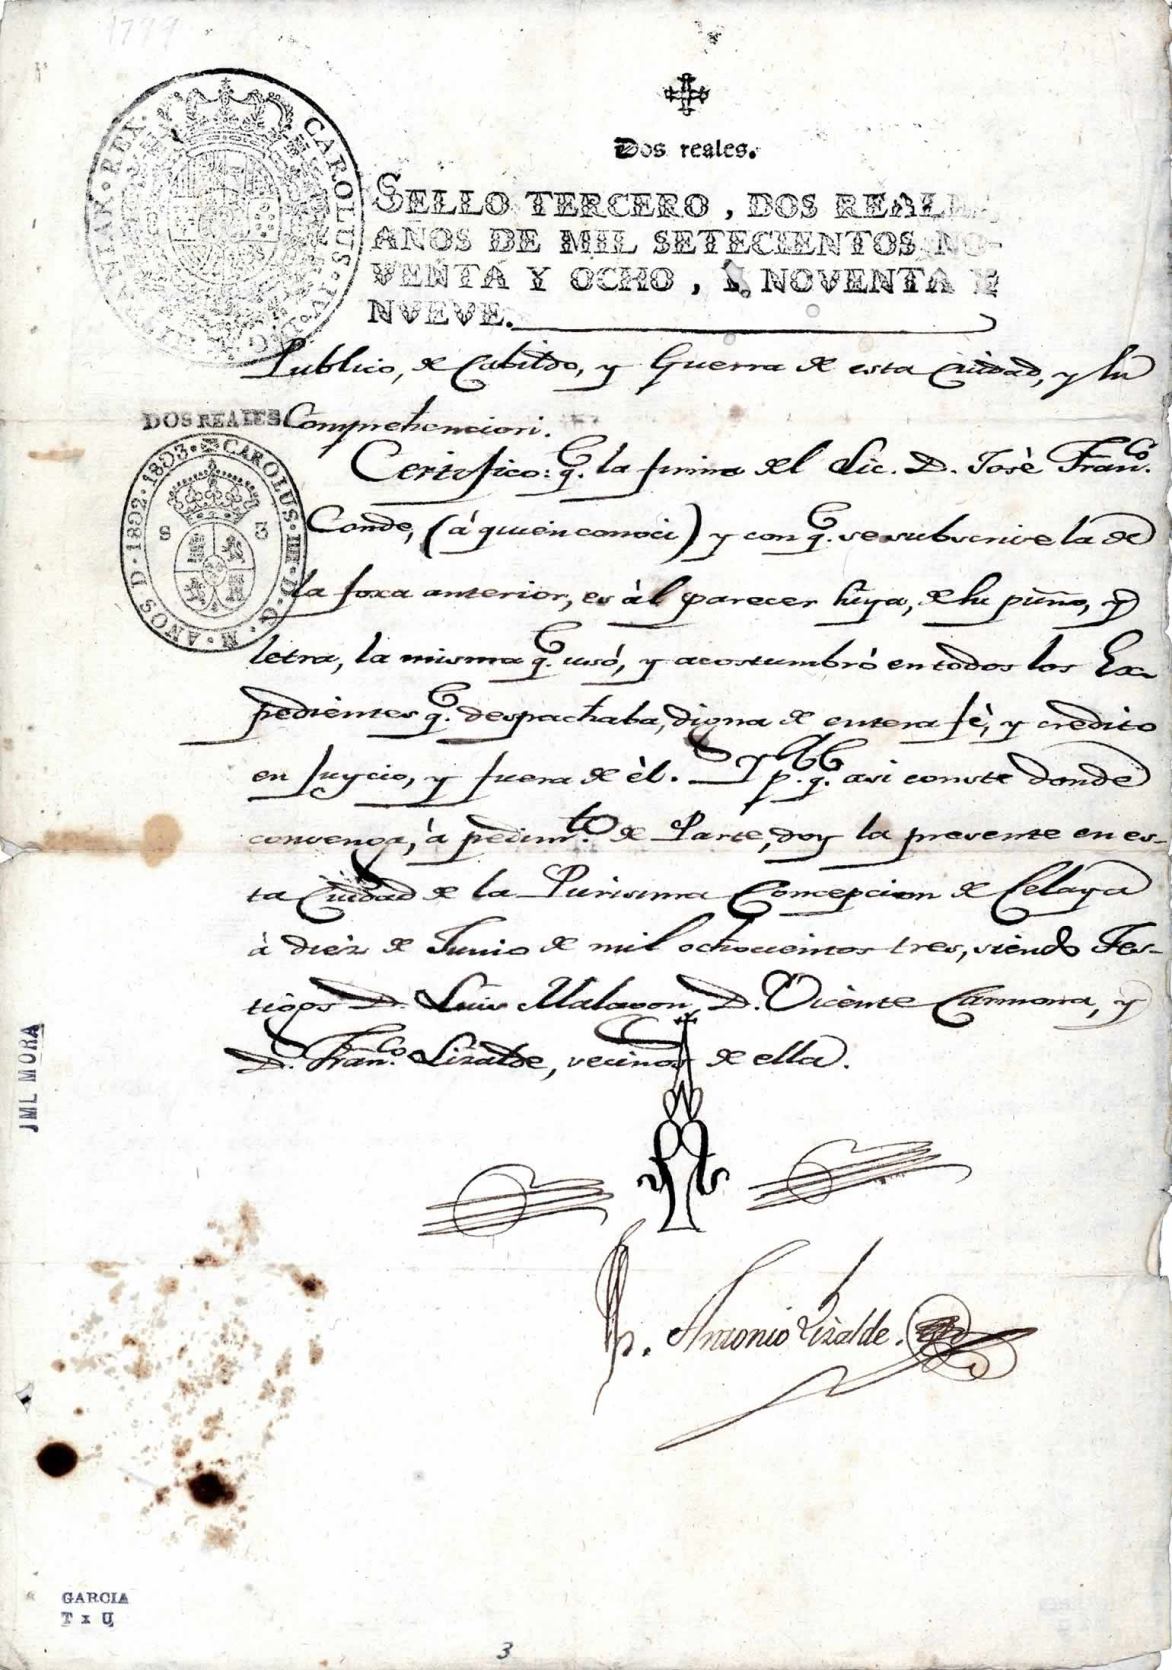 1799
Dos reales.
SELLO TERCERO, DOS REALES
AÑOS DE MIL SETECIENTOS NO-
VENTA Y OCHO, Y NOVENTA Y
NVEVE.
CAROLUS · IV · D · G · HISP · ET · IND · REX
Publico, de Cabildo, y Guerra de esta Ciudad, y su
DOS REALES Comprehencion.
CAROLUS · IIII · D · G · N · AÑOS D · 1802 · 1803 ·
Certifico: q.e la firma del Lic. D. Josè Fran.co
Conde, (à quien conoci) y con q.e se subscrive la de
la foxa anterior, es àl parecer suya, de su puño, y
letra, la misma q.e usó, y acostumbró en todos los Ex-
pedientes q.e despachaba, digna de entera fè, y credito
en Juycio, y fuera de èl. Y p.a q.e asi conste donde
convenga, à pedim.to de Parte, doy la presente en es-
ta Ciudad de la Purisima Concepcion de Celaya
à diez de Junio de mil ochocientos tres, siendo Tes-
tigos D. Luis Malagon, D. Vicente Carmona, y
D. Fran.co Lizalde, vecinos de ella.
Antonio Lizalde.
JML MORA
GARCIA
T x U
3